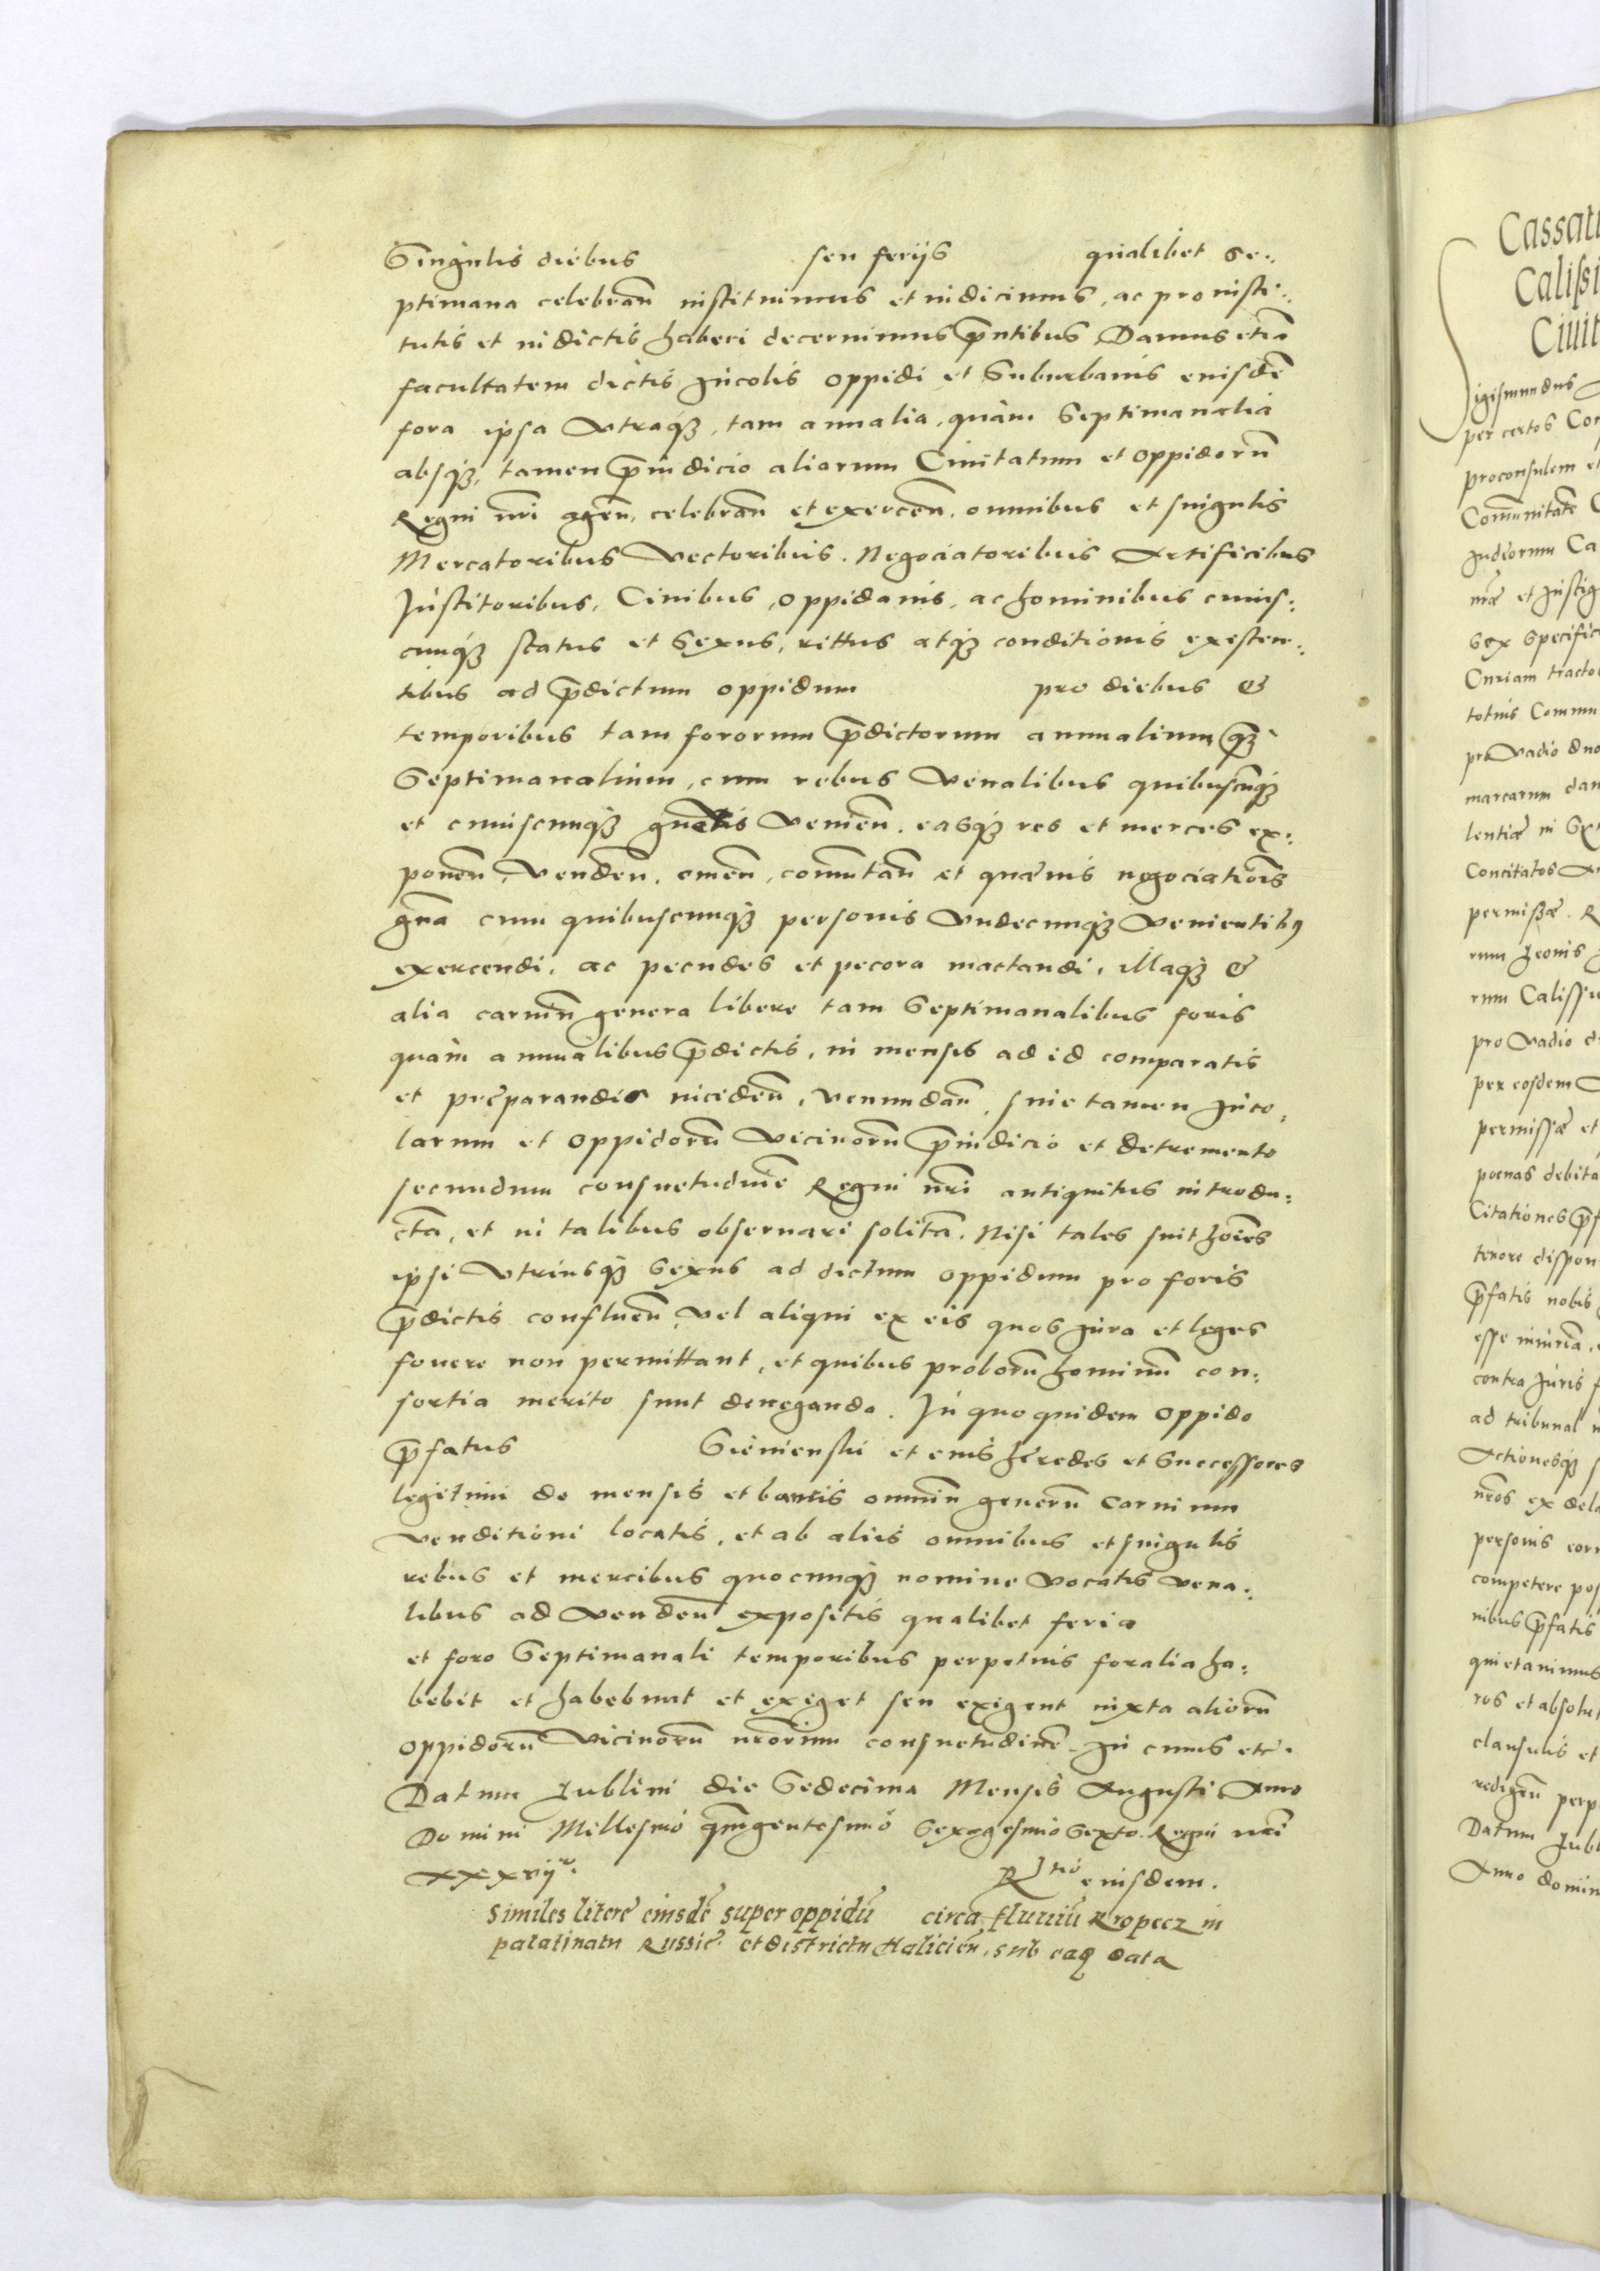 Singulis diebus seu ferijs qualibet se-
ptimana celebrañ instituimus et indicimus, ac pro insti-
tutis et indictis haberi decernimus p̃ntibus Damus etiã
facultatem dictis Incolis oppidi et Suburbanis eiusdẽ
fora ipsa Vtraq3, tam annalia, quàm Septimanalia
absq3, tamen p̃iudicio aliorum Ciuitatum et oppidorũ
Regni nr̃i ageñ, celebrañ et exerceñ, omnibus et singulis
Mercatoribus Vectoribus. Negociatoribus Artificibus
Institoribus, Ciuibus, oppidanis, ac hominibus cuius-
cunq3 status et Sexus, rittus atq3 conditionis existen-
tibus ad p̃dictum oppidum pro diebus &
temporibus tam fororum p̃dictorum annalium q3
Septimanalium, cum rebus Venalibus quibuscũq3
et cuiuscunq3 gñris Venieñ. easq3 res et merces ex-
poneñ, Vendeñ, emeñ, com̃utañ et quæuis negociatiõis
gña cum quibuscunq3 personis Vndecunq3 Venientib9
exercendi, ac pecudes et pecora mactandi, illaq3 &
alia carniũ genera libere tam Septimanalibus foris
quàm annualibus p̃dictis, in mensis ad id comparatis
et preparandis incideñ, venundañ, sine tamen Inco-
larum et oppidorũ Vicinorũ p̃iudicio et detremento
secundum consuetudinẽ Regni nr̃i antiquitus introdu-
ctã, et in talibus obseruari solitã. Nisi tales sint hoĩes
ipsi Vtriusq3 sexus ad dictum oppidum pro foris
p̃dictis conflueñ, vel aliqui ex eis quos Iura et leges
fouere non permittant, et quibus proborũ hominũ con-
sortia merito sunt deneganda. In quo quidem oppido
p̃fatus Sienienski et eius heredes et Successores
legitimi de mensis et bancis omniũ generũ carnium
venditioni locatis, et ab aliis omnibus et singulis
rebus et mercibus quocunq3 nomine Vocatis Vena-
libus ad Vendeñ expositis qualibet feria
et foro Septimanali temporibus perpetuis foralia ha-
bebit et habebunt et exiget seu exigent iuxta aliorũ
oppidorũ Vicinorũ nr̃orum consuetudinẽ. In cuius etc.
Datum Lublini die Sedecima Mensis Augusti Anno
Domini Millesimo quingentesimo Sexagesimo Sexto. Regni nr̃i
xxxvij°.
R̃tio eiusdem.
Similes litere eiusdẽ super oppidũ circa fluuiũ Kropecz in
palatinatu Russie et districtu Halicieñ, sub eaq̃ data
Cassati
Calissi
Ciuit
Sigismundus
per certos Con
proconsulem et
Com̃unitatẽ
Iudeorum Ca
et Instig
sex specific
Curiam tracto
totius Commu
pro Vadio duo
marcarum dan
lentiæ in
Concitatos
permissæ. R
rum
rum Calissie
pro Vadio d
per eosdem
permissæ et
poenas debita
Citationes p̃f
tenore dispon
p̃fatis nobis
esse iniuriã
contra Iuris f
ad tribunal
Actionesq3
nr̃os ex dela
personis eor
competere pos
nibus p̃fatis
quietauimus
ros et absolut
clausulis et
redigeñ perp
Datum Lubl
Anno domin